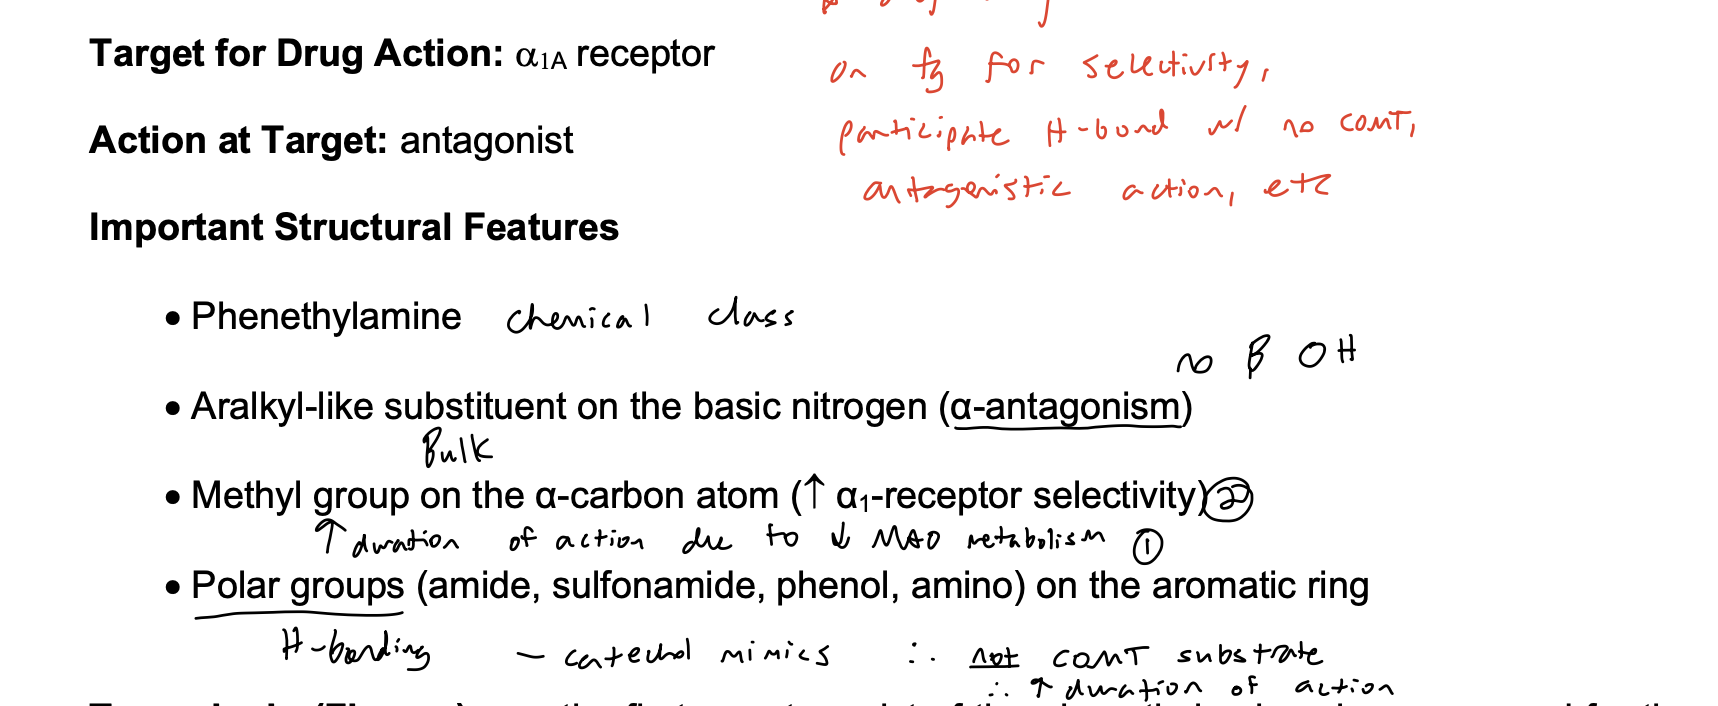 Target for Drug Action: α1A receptor
on fg for selectivity,
participate H-bond w/ no COMT,
Action at Target: antagonist
antagonistic action, etc
Important Structural Features
• Phenethylamine chemical class
no β OH
• Aralkyl-like substituent on the basic nitrogen (α-antagonism)
Bulk
• Methyl group on the α-carbon atom (↑ α1-receptor selectivity) ②
↑ duration of action due to ↓ MAO metabolism ①
• Polar groups (amide, sulfonamide, phenol, amino) on the aromatic ring
H-bonding – catechol mimics ∴ not COMT substrate
∴ ↑ duration of action